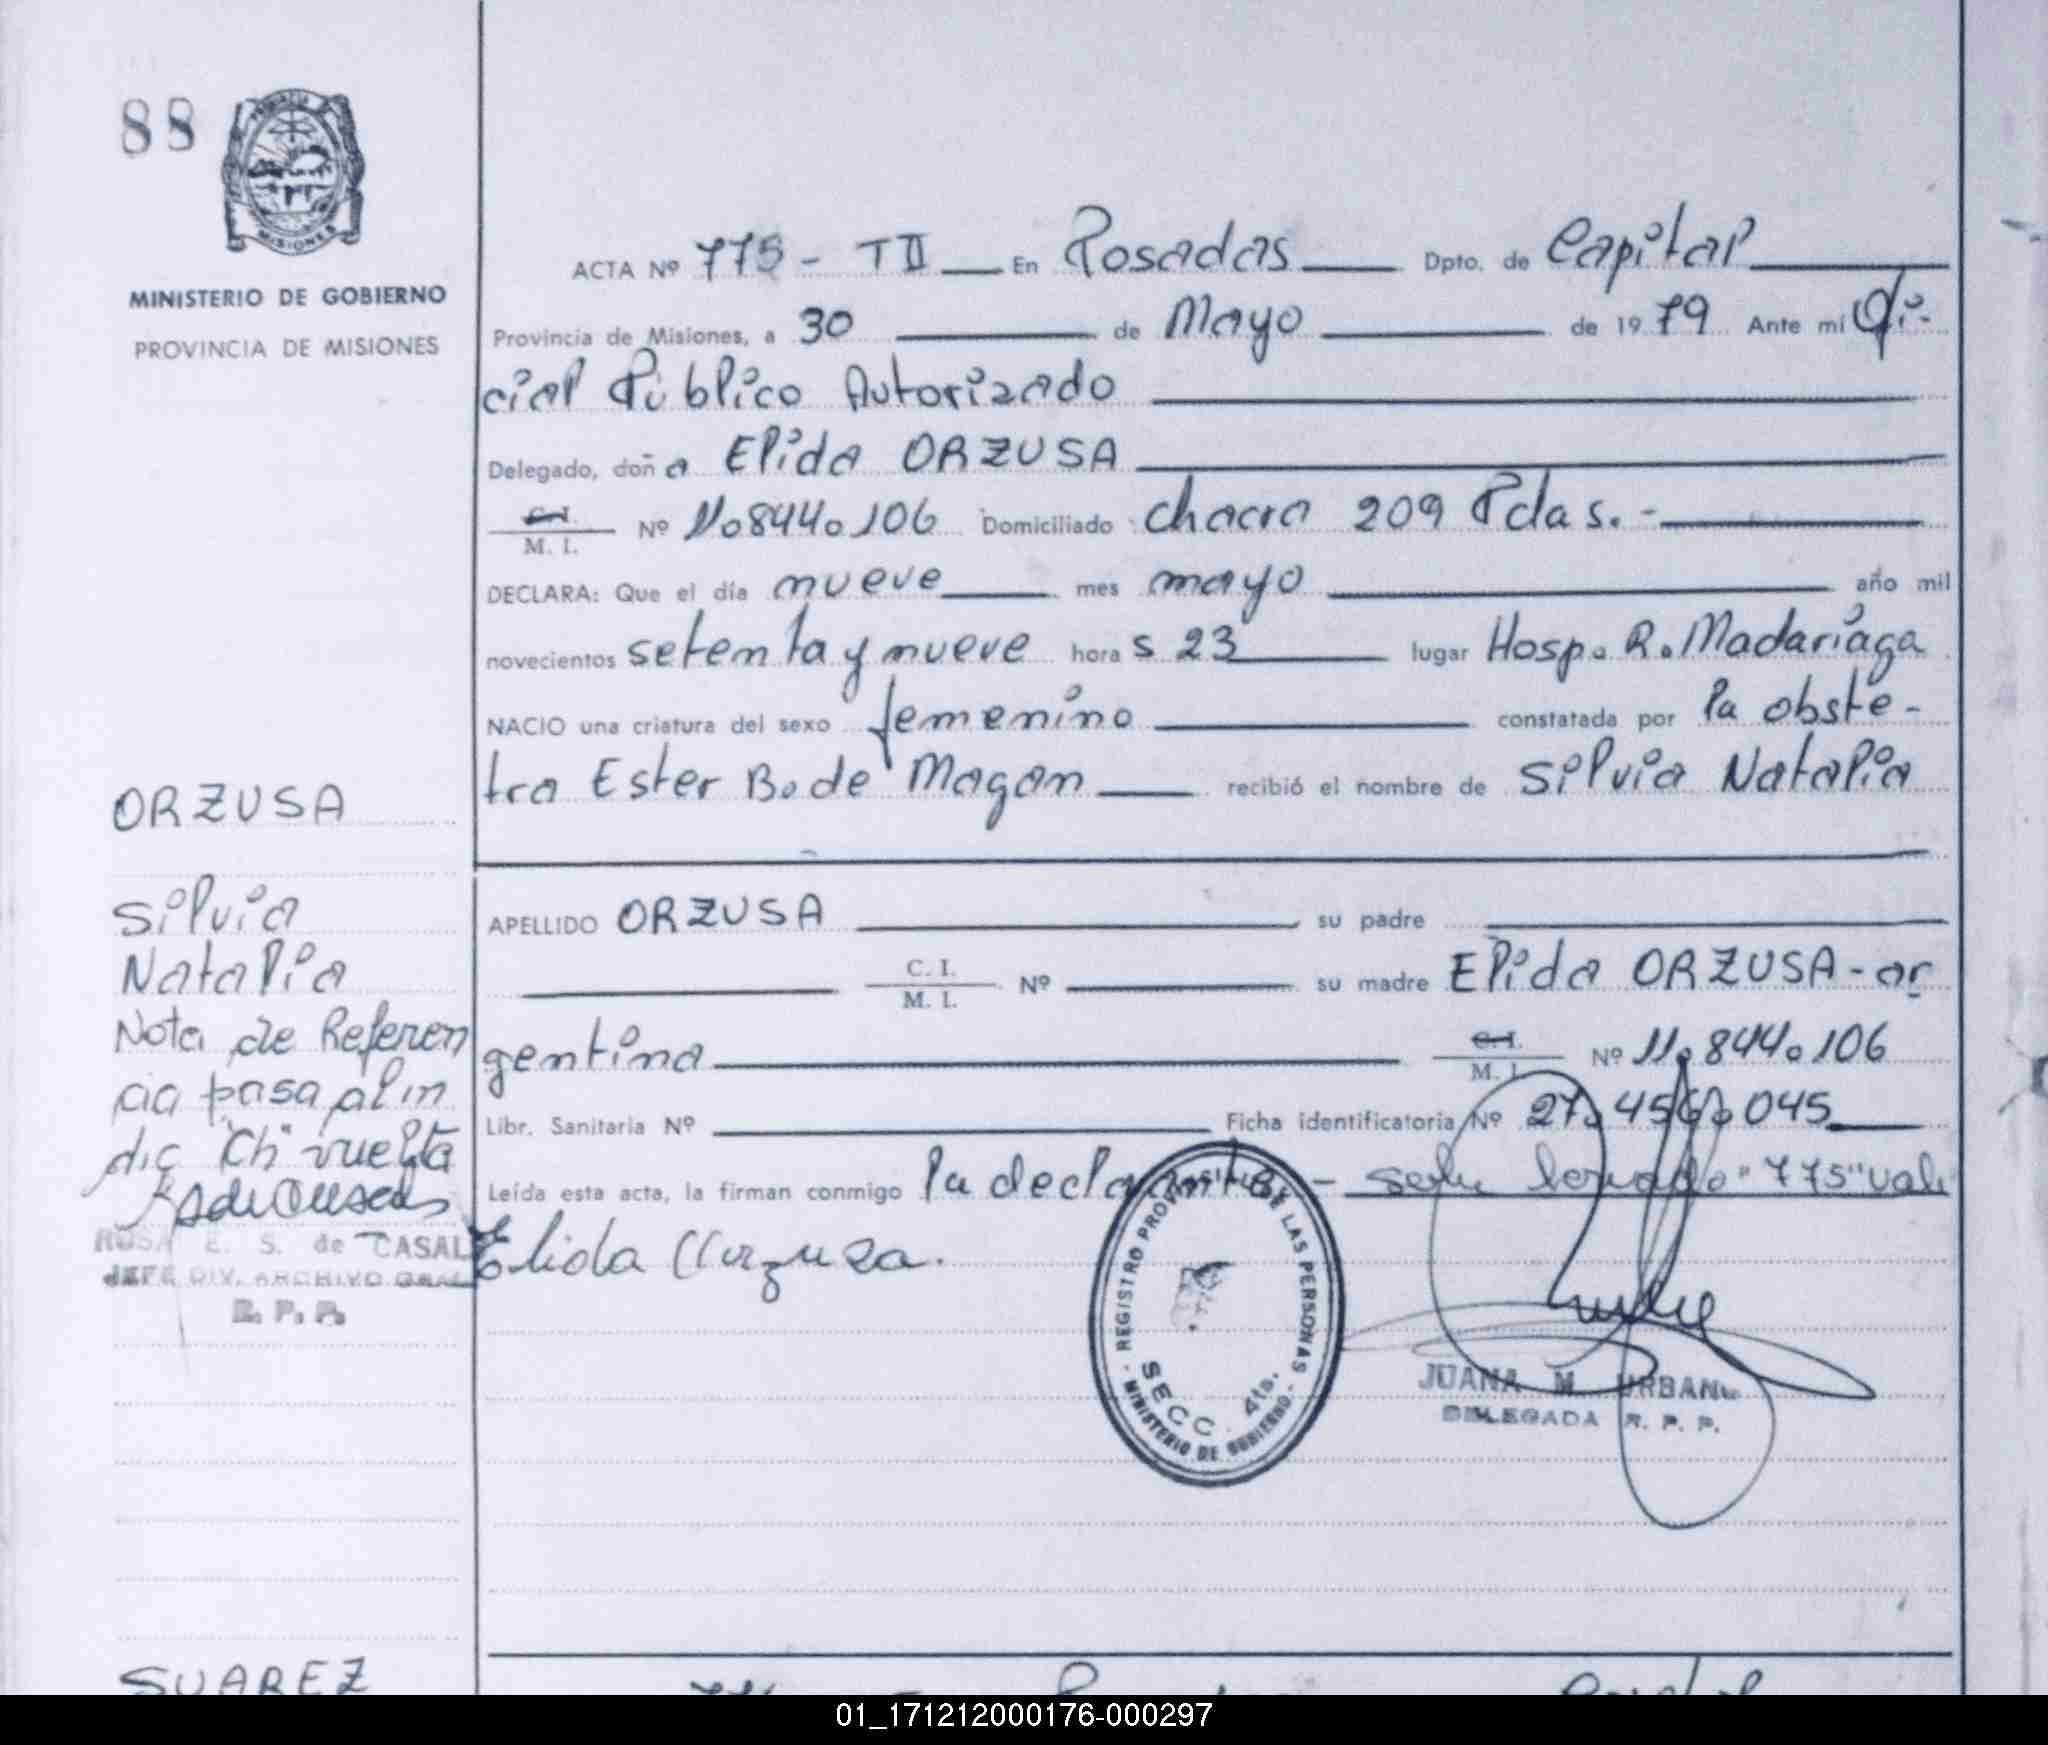 88
PROVINCIA DE
MISIONES
MINISTERIO DE GOBIERNO
PROVINCIA DE MISIONES
ACTA Nº 775 - TII En Posadas Dpto. de Capital
Provincia de Misiones, a 30 de Mayo de 1979 Ante mi Ofi-
cial Público Autorizado
Delegado, doña Elida ORZUSA
C. I.
M. I. Nº 11.844.106 Domiciliado chacra 209 Pdas.-
DECLARA: Que el día nueve mes mayo año mil
novecientos setenta y nueve horas 23 lugar Hosp. R. Madariaga
NACIO una criatura del sexo femenino constatada por la obste-
tra Ester B. de Magan recibió el nombre de Silvia Natalia
ORZUSA
Silvia
Natalia
Nota de Referen
cia pasa al in
dic "Ch" vuelta
ROSA E. S. de CASAL
JEFE DIV. ARCHIVO GRAL
R. P. P.
APELLIDO ORZUSA su padre
C. I.
M. I. Nº su madre Elida ORZUSA - ar
gentina C. I.
M. I. Nº 11.844.106
Libr. Sanitaria Nº Ficha identificatoria Nº 27.456.045
Leída esta acta, la firman conmigo la declarante.- "775" vale
Elida Orzusa.
REGISTRO PROVINCIAL DE LAS PERSONAS
SECC. 4ta.
- MINISTERIO DE GOBIERNO -
JUANA M. URBAN
DELEGADA R. P. P.
SUAREZ
01_171212000176-000297